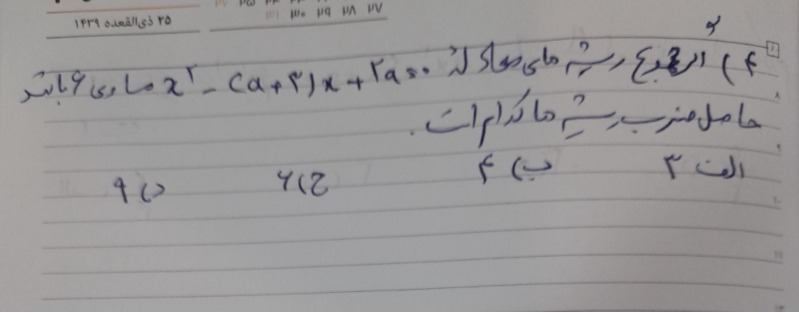 ۲۵ ذی‌القعده ۱۴۳۹
۲۷ ۲۸ ۲۹ ۳۰ ۳۱
۴) اگر مجموع ریشه های معادله x² - (a+۳)x + ۲a = ۰ مساوی ۶ باشد
حاصل ضرب ریشه ها کدام است.
الف ۳ ب) ۴ ج) ۶ د) ۹